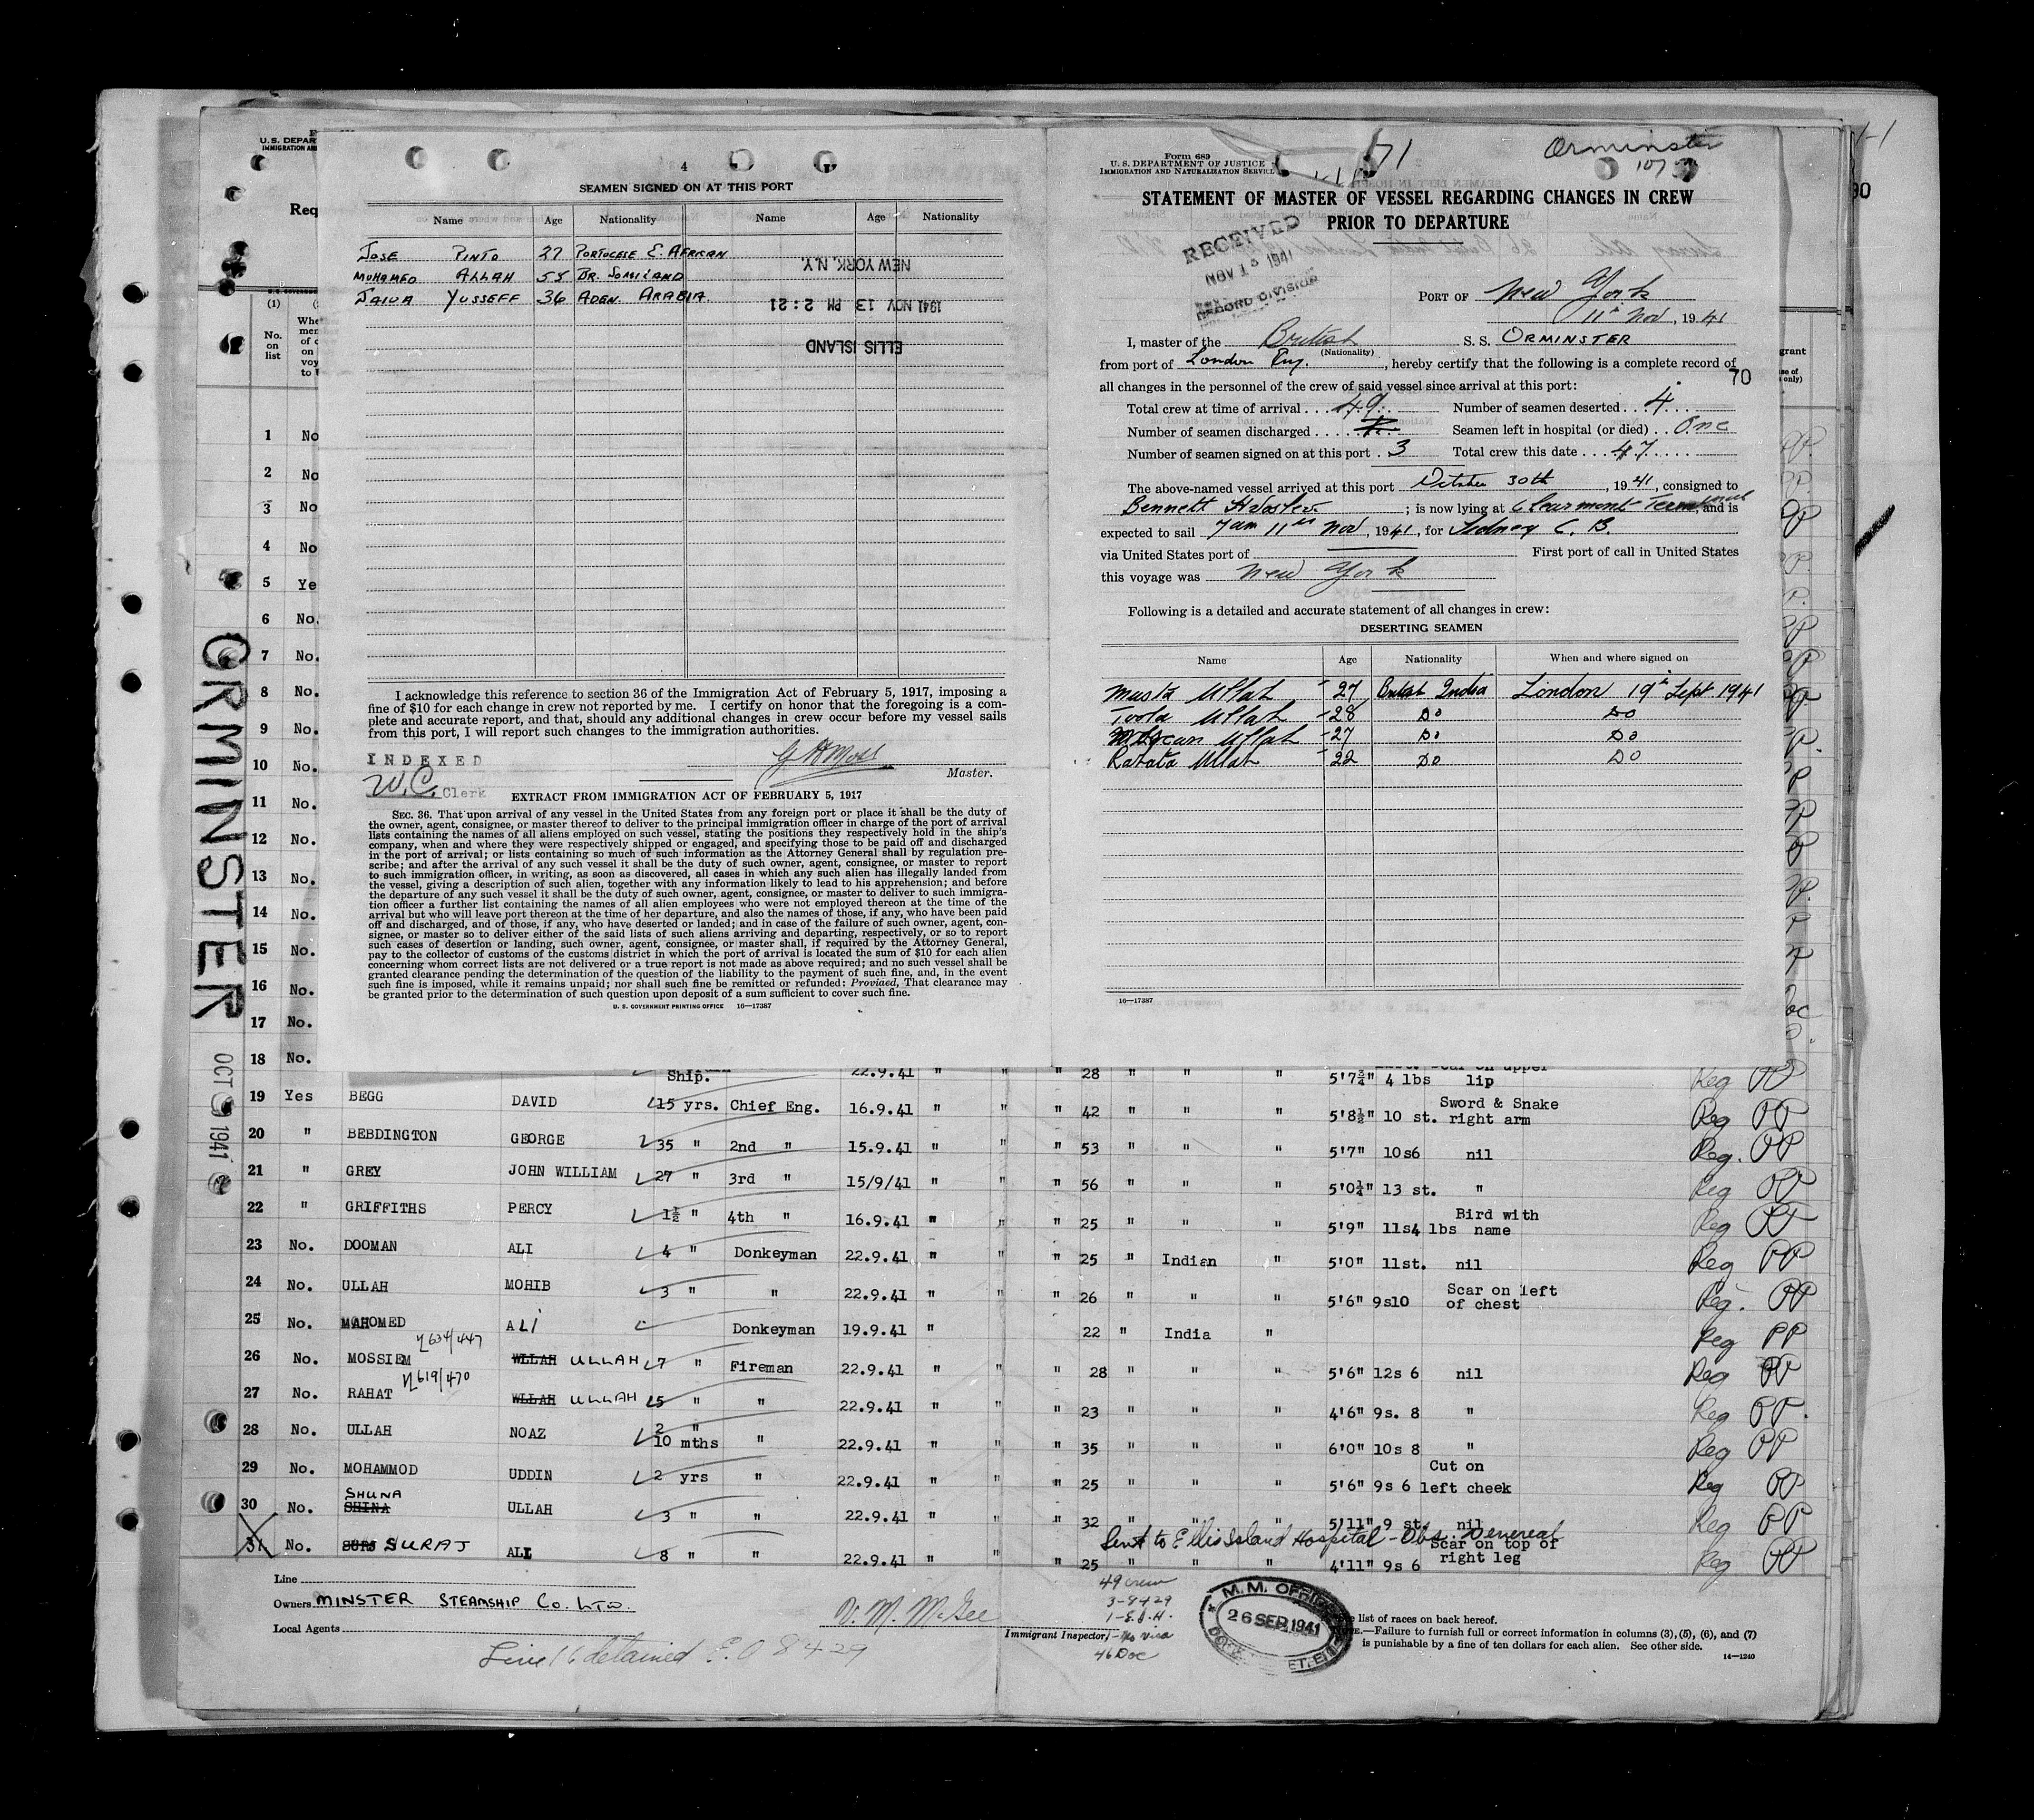 U.S. DEPAR
IMMIGRATION AND
Req
ORMINSTER
OCT 1941
4
SEAMEN SIGNED ON AT THIS PORT
Name Age Nationality Name Age Nationality
JOSE PINTO 27 PORTUGESE E. AFRICAN
MOHAMED ALLAH 55 BR. SOMILAND
YUSSEFF 36 ADEN. ARABIA.
NEW YORK, N.Y.
1941 NOV 13 PM 2:21
ELLIS ISLAND
I acknowledge this reference to section 36 of the Immigration Act of February 5, 1917, imposing a
fine of $10 for each change in crew not reported by me. I certify on honor that the foregoing is a com-
plete and accurate report, and that, should any additional changes in crew occur before my vessel sails
from this port, I will report such changes to the immigration authorities.
INDEXED
W.C. Clerk
Master.
EXTRACT FROM IMMIGRATION ACT OF FEBRUARY 5, 1917
SEC. 36. That upon arrival of any vessel in the United States from any foreign port or place it shall be the duty of
the owner, agent, consignee, or master thereof to deliver to the principal immigration officer in charge of the port of arrival
lists containing the names of all aliens employed on such vessel, stating the positions they respectively hold in the ship's
company, when and where they were respectively shipped or engaged, and specifying those to be paid off and discharged
in the port of arrival; or lists containing so much of such information as the Attorney General shall by regulation pre-
scribe; and after the arrival of any such vessel it shall be the duty of such owner, agent, consignee, or master to report
to such immigration officer, in writing, as soon as discovered, all cases in which any such alien has illegally landed from
the vessel, giving a description of such alien, together with any information likely to lead to his apprehension; and before
the departure of any such vessel it shall be the duty of such owner, agent, consignee, or master to deliver to such immigra-
tion officer a further list containing the names of all alien employees who were not employed thereon at the time of the
arrival but who will leave port thereon at the time of her departure, and also the names of those, if any, who have been paid
off and discharged, and of those, if any, who have deserted or landed; and in case of the failure of such owner, agent, con-
signee, or master so to deliver either of the said lists of such aliens arriving and departing, respectively, or so to report
such cases of desertion or landing, such owner, agent, consignee, or master shall, if required by the Attorney General,
pay to the collector of customs of the customs district in which the port of arrival is located the sum of $10 for each alien
concerning whom correct lists are not delivered or a true report is not made as above required; and no such vessel shall be
granted clearance pending the determination of the question of the liability to the payment of such fine, and, in the event
such fine is imposed, while it remains unpaid; nor shall such fine be remitted or refunded: Provided, That clearance may
be granted prior to the determination of such question upon deposit of a sum sufficient to cover such fine.
U. S. GOVERNMENT PRINTING OFFICE 16—17387
Form 689
U. S. DEPARTMENT OF JUSTICE
IMMIGRATION AND NATURALIZATION SERVICE
171
Orminster
107
STATEMENT OF MASTER OF VESSEL REGARDING CHANGES IN CREW
PRIOR TO DEPARTURE
RECEIVED
NOV 13 1941
RECORD DIVISION
PORT OF New York
11th Nov, 1941
I, master of the British S. S. ORMINSTER
(Nationality)
from port of London Eng., hereby certify that the following is a complete record of
70
all changes in the personnel of the crew of said vessel since arrival at this port:
Total crew at time of arrival 49 Number of seamen deserted 4
Number of seamen discharged Seamen left in hospital (or died) One
Number of seamen signed on at this port 3 Total crew this date 47
The above-named vessel arrived at this port October 30th, 1941, consigned to
Bennett ; is now lying at Clearmont Terminal, and is
expected to sail 7am 11th Nov, 1941, for Sidney C. B.
via United States port of First port of call in United States
this voyage was New York
Following is a detailed and accurate statement of all changes in crew:
DESERTING SEAMEN
Name Age Nationality When and where signed on
Ullah 27 British India London 19th Sept 1941
Ullah 28 Do Do
Ullah 27 Do Do
Ullah 22 Do Do
16—17387
(1)
No. on list
1 No
2 No
3 No
4 No
5 Ye
6 No.
7 No.
8 No.
9 No.
10 No.
11 No.
12 No.
13 No.
14 No.
15 No.
16 No.
17 No.
18 No. Ship. 22.9.41 " " " 28 " " " 5'7¾" 4 lbs lip Reg PP
19 Yes BEGG DAVID 15 yrs. Chief Eng. 16.9.41 " " " 42 " " " 5'8½" 10 st. Sword & Snake right arm Reg PP
20 " BEBDINGTON GEORGE 35 " 2nd " 15.9.41 " " " 53 " " " 5'7" 10s6 nil Reg. PP
21 " GREY JOHN WILLIAM 27 " 3rd " 15/9/41 " " " 56 " " " 5'0¼" 13 st. " Reg PP
22 " GRIFFITHS PERCY 1½ " 4th " 16.9.41 " " " 25 " " " 5'9" 11s4 lbs Bird with name Reg PP
23 No. DOOMAN ALI 4 " Donkeyman 22.9.41 " " " 25 " Indian " 5'0" 11st. nil Reg PP
24 No. ULLAH MOHIB 3 " " 22.9.41 " " " 26 " " " 5'6" 9s10 Scar on left of chest Reg. PP
25 No. MAHOMED ALI Donkeyman 19.9.41 " 22 " India " Reg PP
634/447
26 No. MOSSIEM WLLAH ULLAH 7 " Fireman 22.9.41 " " " 28 " " " 5'6" 12s 6 nil Reg PP
619/470
27 No. RAHAT WLLAH ULLAH 5 " " 22.9.41 " " " 23 " " " 4'6" 9s. 8 " Reg PP.
28 No. ULLAH NOAZ 2 " 10 mths " 22.9.41 " " " 35 " " " 6'0" 10s 8 " Reg PP
29 No. MOHAMMOD UDDIN 2 yrs " 22.9.41 " " " 25 " " " 5'6" 9s 6 Cut on left cheek Reg PP
30 No. SHUNA SHINA ULLAH 3 " " 22.9.41 " " " 32 " " " 5'11" 9 st. nil Reg PP
Sent to Ellis Island Hospital - Obs. Venereal
31 No. SURJ SURAJ ALI 8 " " 22.9.41 " " " 25 " " " 4'11" 9s 6 Scar on top of right leg Reg PP
Line
Owners MINSTER STEAMSHIP CO. LTD.
Local Agents
V. M. McGee
Immigrant Inspector
49 crew
3-8429
1-E.I.H.
1-No visa
46 Doc
M. M. OFFICE
26 SEP 1941
list of races on back hereof.
NOTE.—Failure to furnish full or correct information in columns (3), (5), (6), and (7)
is punishable by a fine of ten dollars for each alien. See other side.
14—1240
Line 16 detained E.O 8429